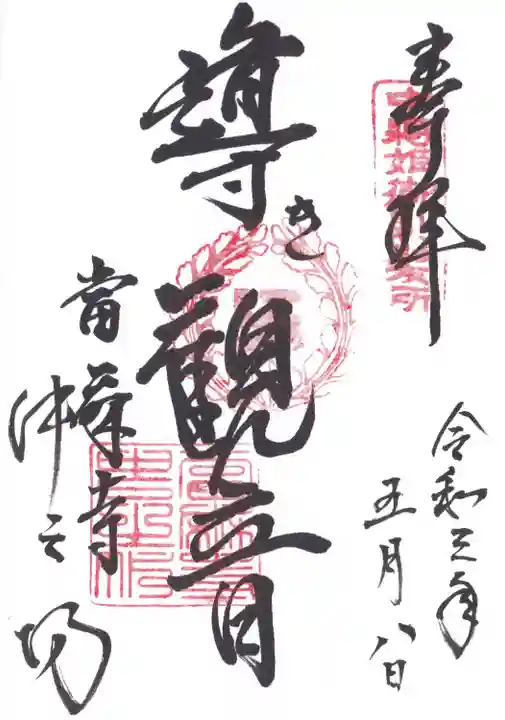 奉拝
令和三年
五月八日
導き觀音
當麻寺
中之坊